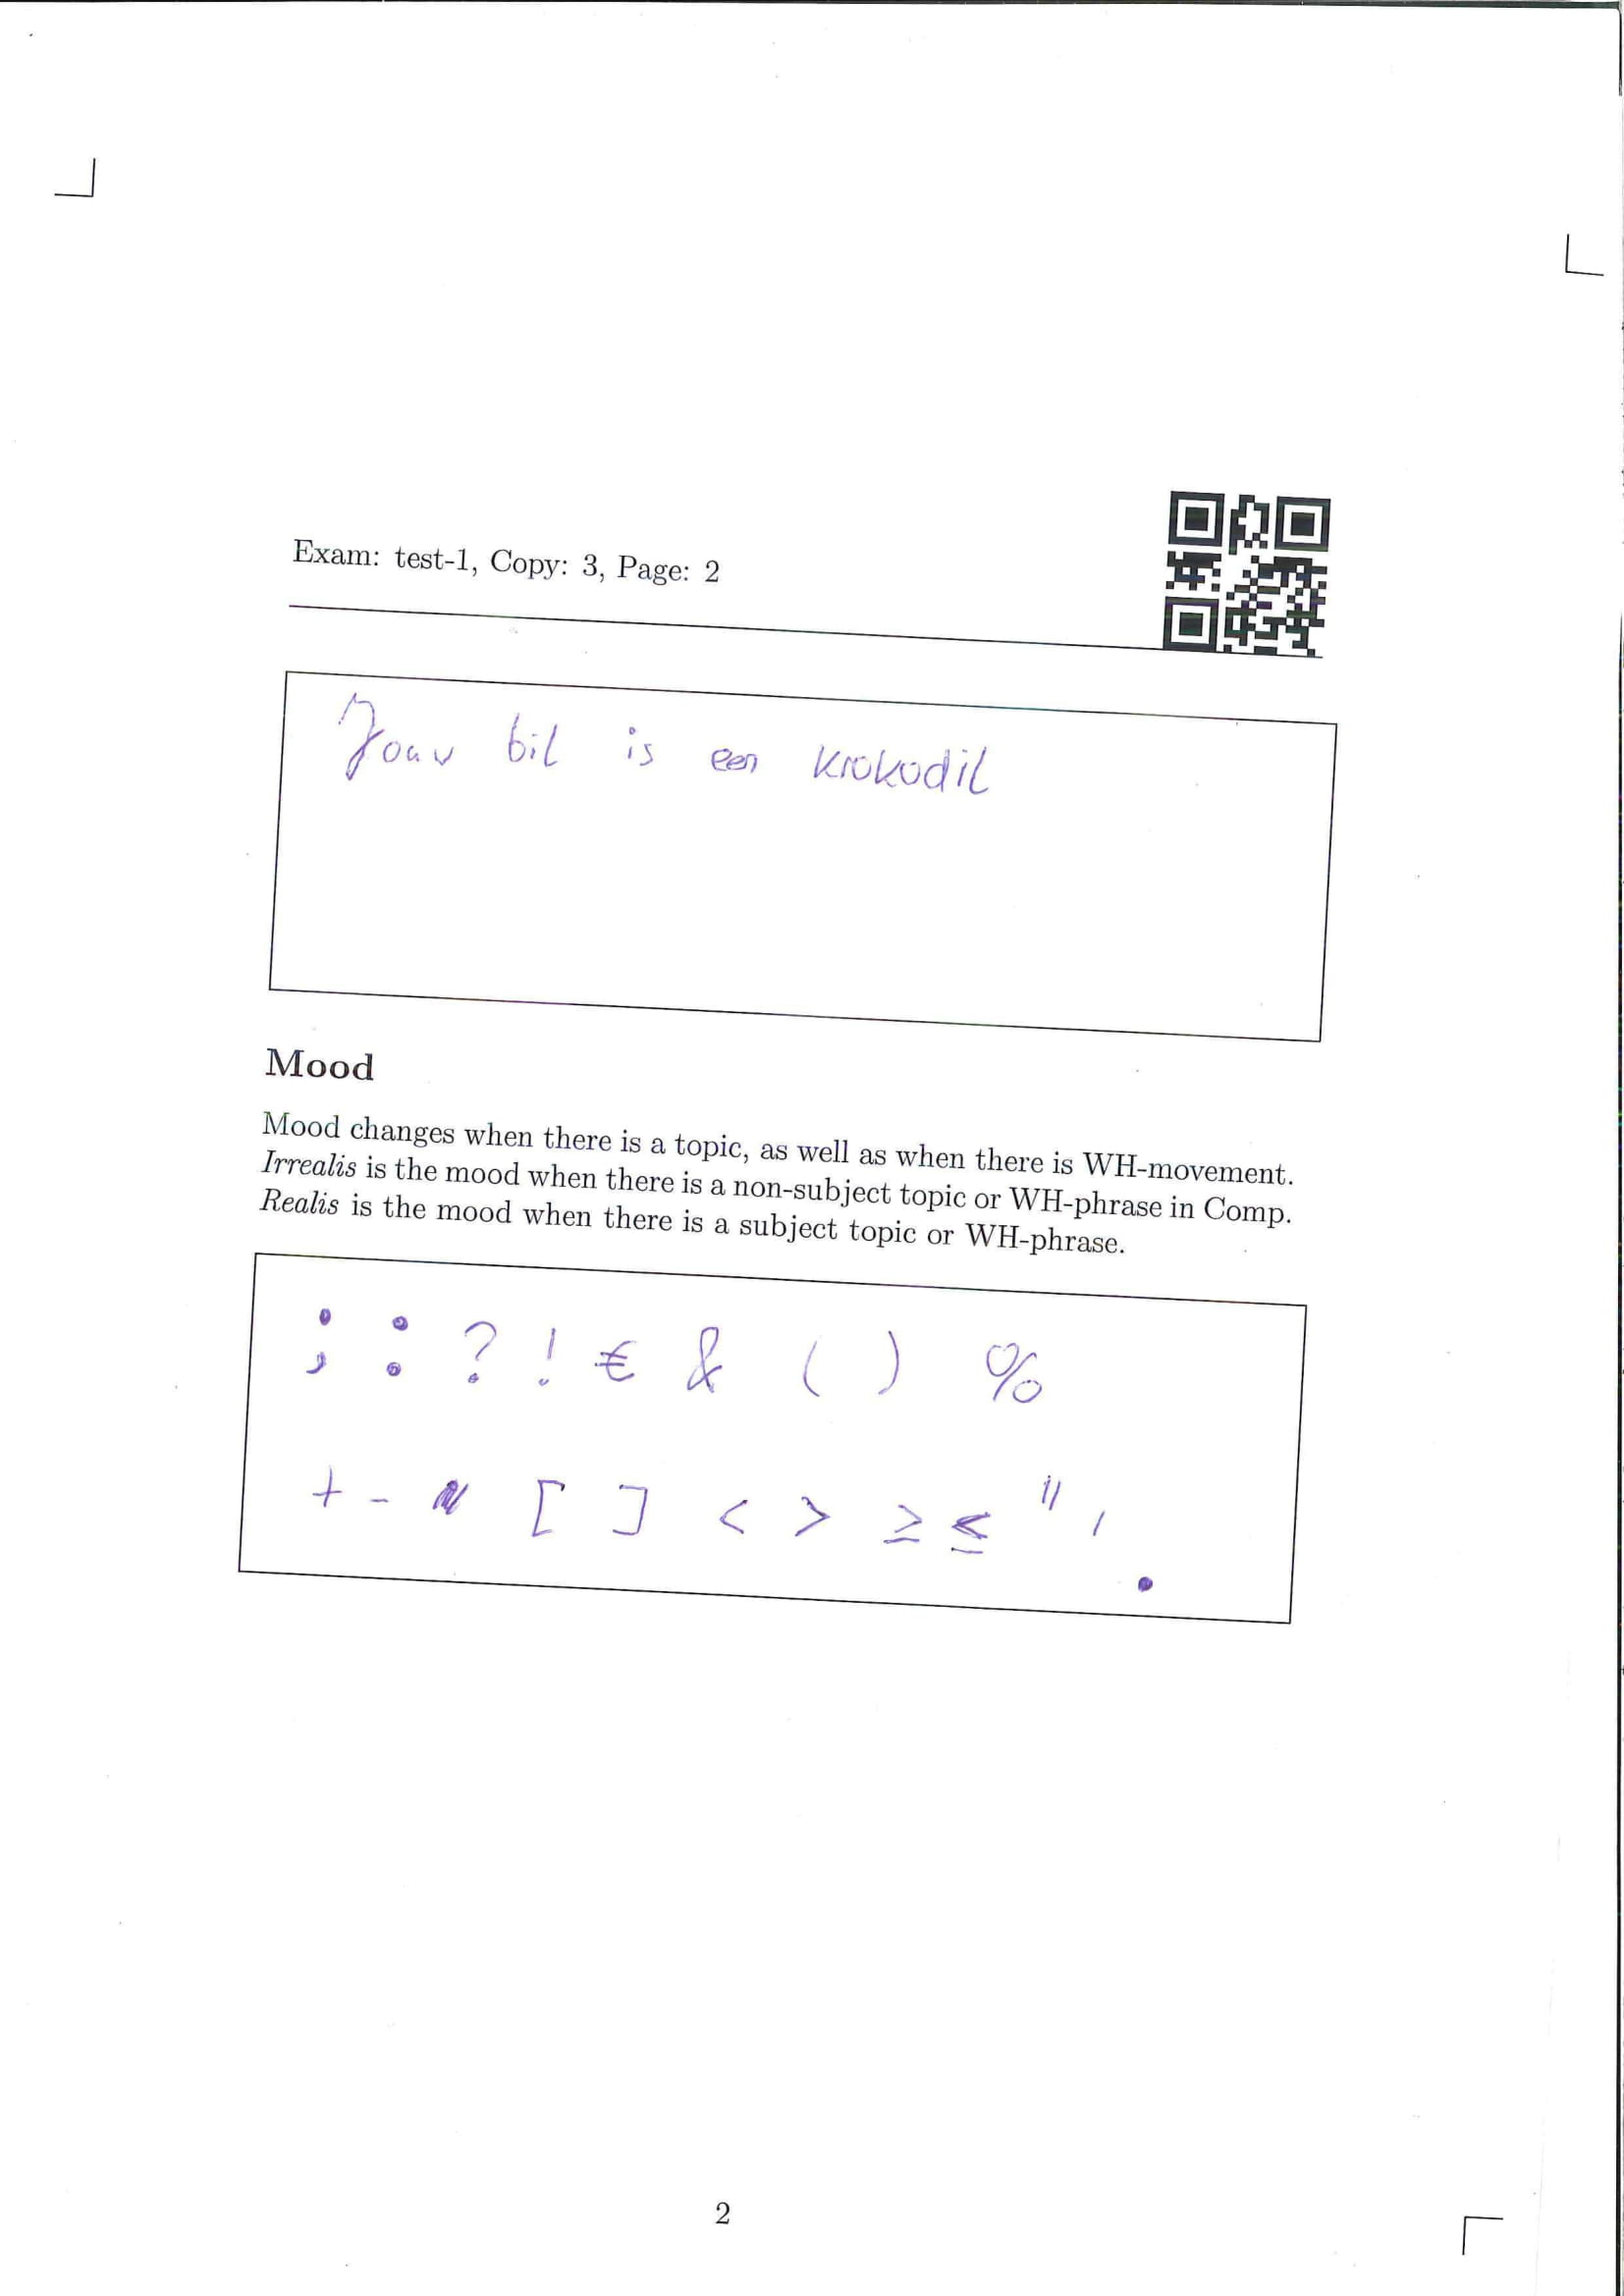 Exam: test-1, Copy: 3, Page: 2
Jouw bil is een krokodil
Mood
Mood changes when there is a topic, as well as when there is WH-movement.
Irrealis is the mood when there is a non-subject topic or WH-phrase in Comp.
Realis is the mood when there is a subject topic or WH-phrase.
; : ? ! € & ( ) %
+ - [ ] < > ≥ ≤ " ' .
2